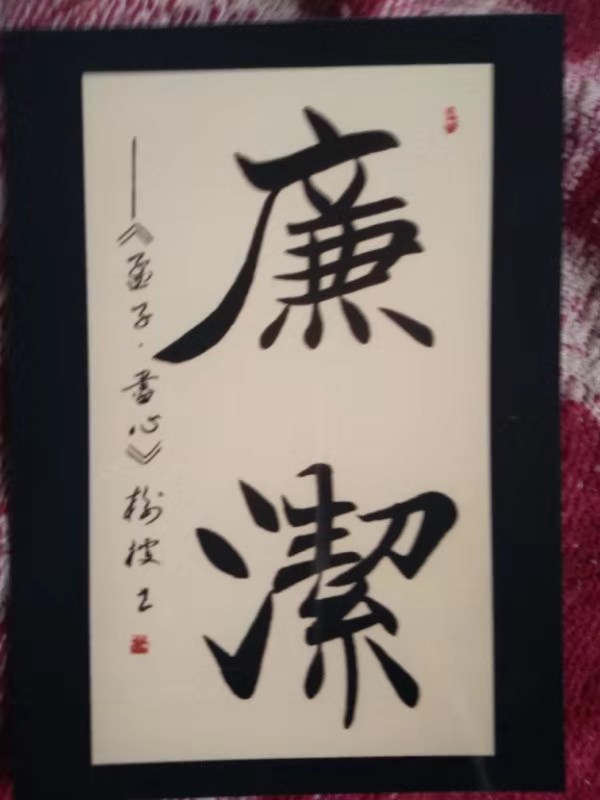 廉潔
——《孟子·盡心》